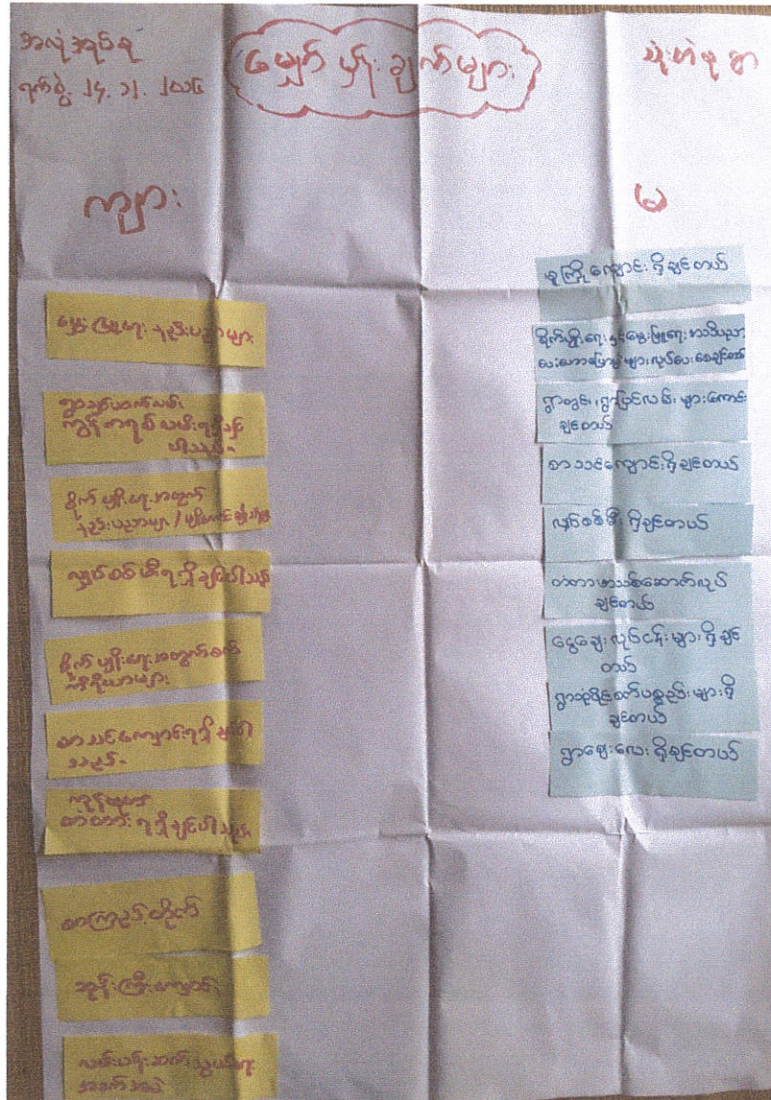 အလုံအုပ်စု
မျှော်မှန်းချက်များ
သုံးဟဲမူရွာ
ရက်စွဲ. ၂၄. ၁၂. ၂၀၁၄
ကျား
မ
မွေးမြူရေး နည်းပညာများ
ရွာချင်းဆက်လမ်း
ကွန်ကရစ်လမ်းရရှိချင်
ပါသည်။
စိုက်ပျိုးရေးအတွက်
နည်းပညာများ /
လျှပ်စစ်မီးရရှိချင်ပါသည်
စိုက်ပျိုးရေးအတွက်စက်
ကိရိယာများ
စာသင်ကျောင်းရရှိချင်ပါ
သည်။
တံတားရရှိချင်ပါသည်
စာကြည့်တိုက်
ဘုန်းကြီးကျောင်း
လမ်းပန်းဆက်သွယ်ရေး
အခက်အခဲ
မူကြိုကျောင်းရှိချင်တယ်
စိုက်ပျိုးရေးနှင့်မွေးမြူရေးအသိပညာ
ပေးဟောပြောပွဲများလုပ်ပေးစေချင်တယ်
ရွာတွင်း၊ရွာပြင်လမ်းများကောင်း
ချင်တယ်
စာသင်ကျောင်းရှိချင်တယ်
လျှပ်စစ်မီးရှိချင်တယ်
တံတားအသစ်ဆောက်လုပ်
ချင်တယ်
ငွေချေးလုပ်ငန်းများရှိချင်
တယ်
ရွာသုံးပိုင်ဆိုင်ပစ္စည်းများရှိ
ချင်တယ်
ရွာဈေးလေးရှိချင်တယ်